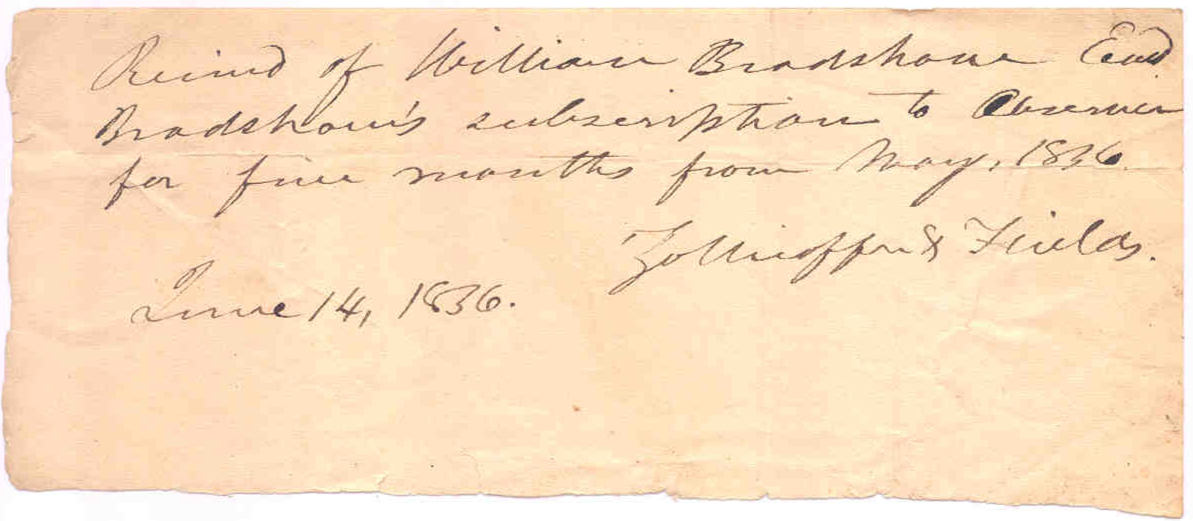 Received of William Bradshaw
Bradshaw's subscription to Observer
for five months from May, 1836.
Zollicoffer & Fields.
June 14, 1836.